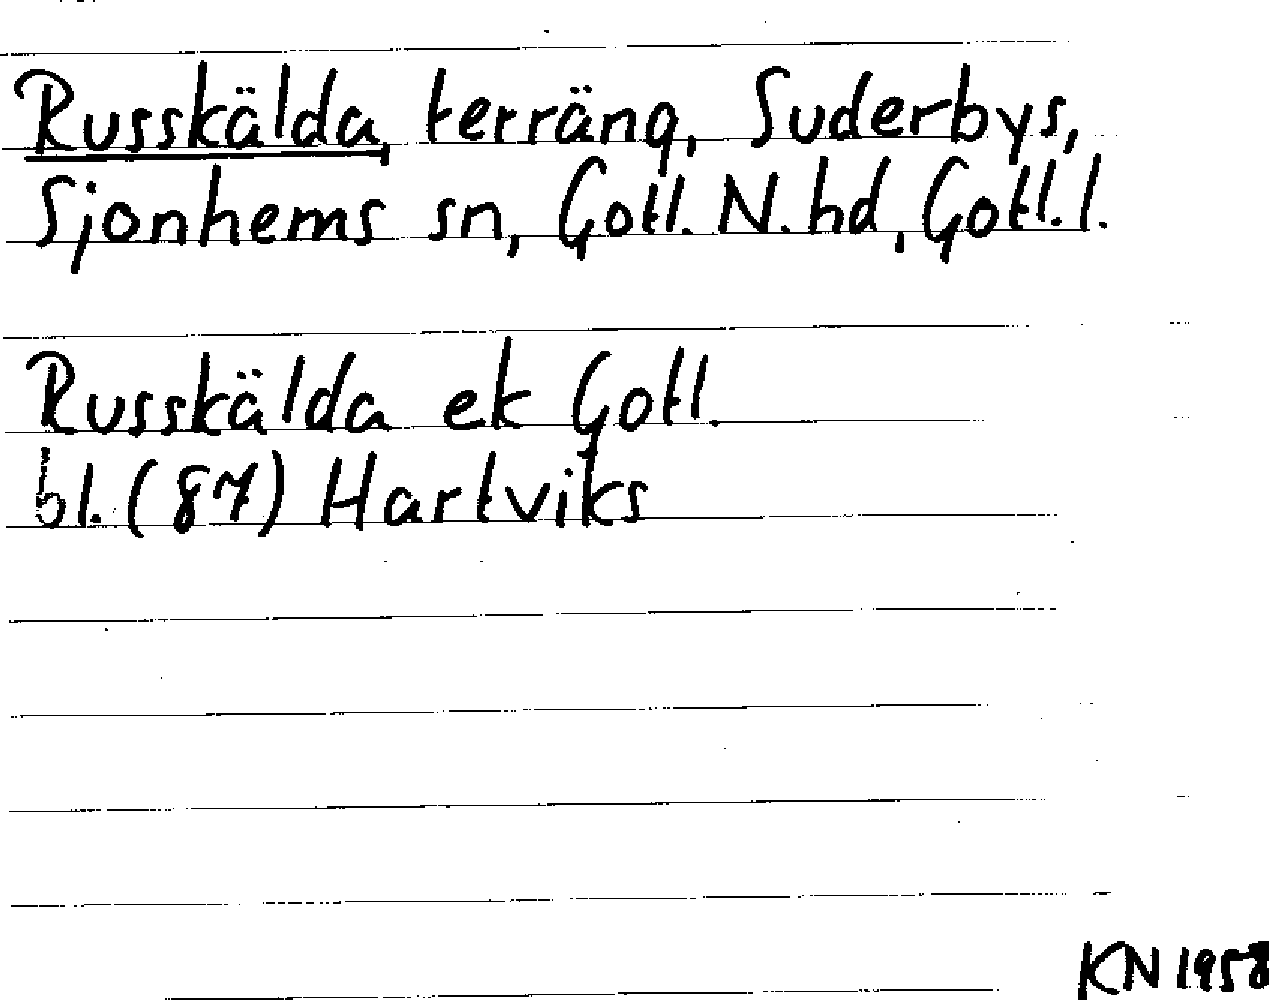 Russkälda, terräng, Suderbys,
Sjonhems sn, Gotl. N. hd, Gotl. l.
Russkälda ek Gotl.
bl. (87) Hartviks
KN 1958